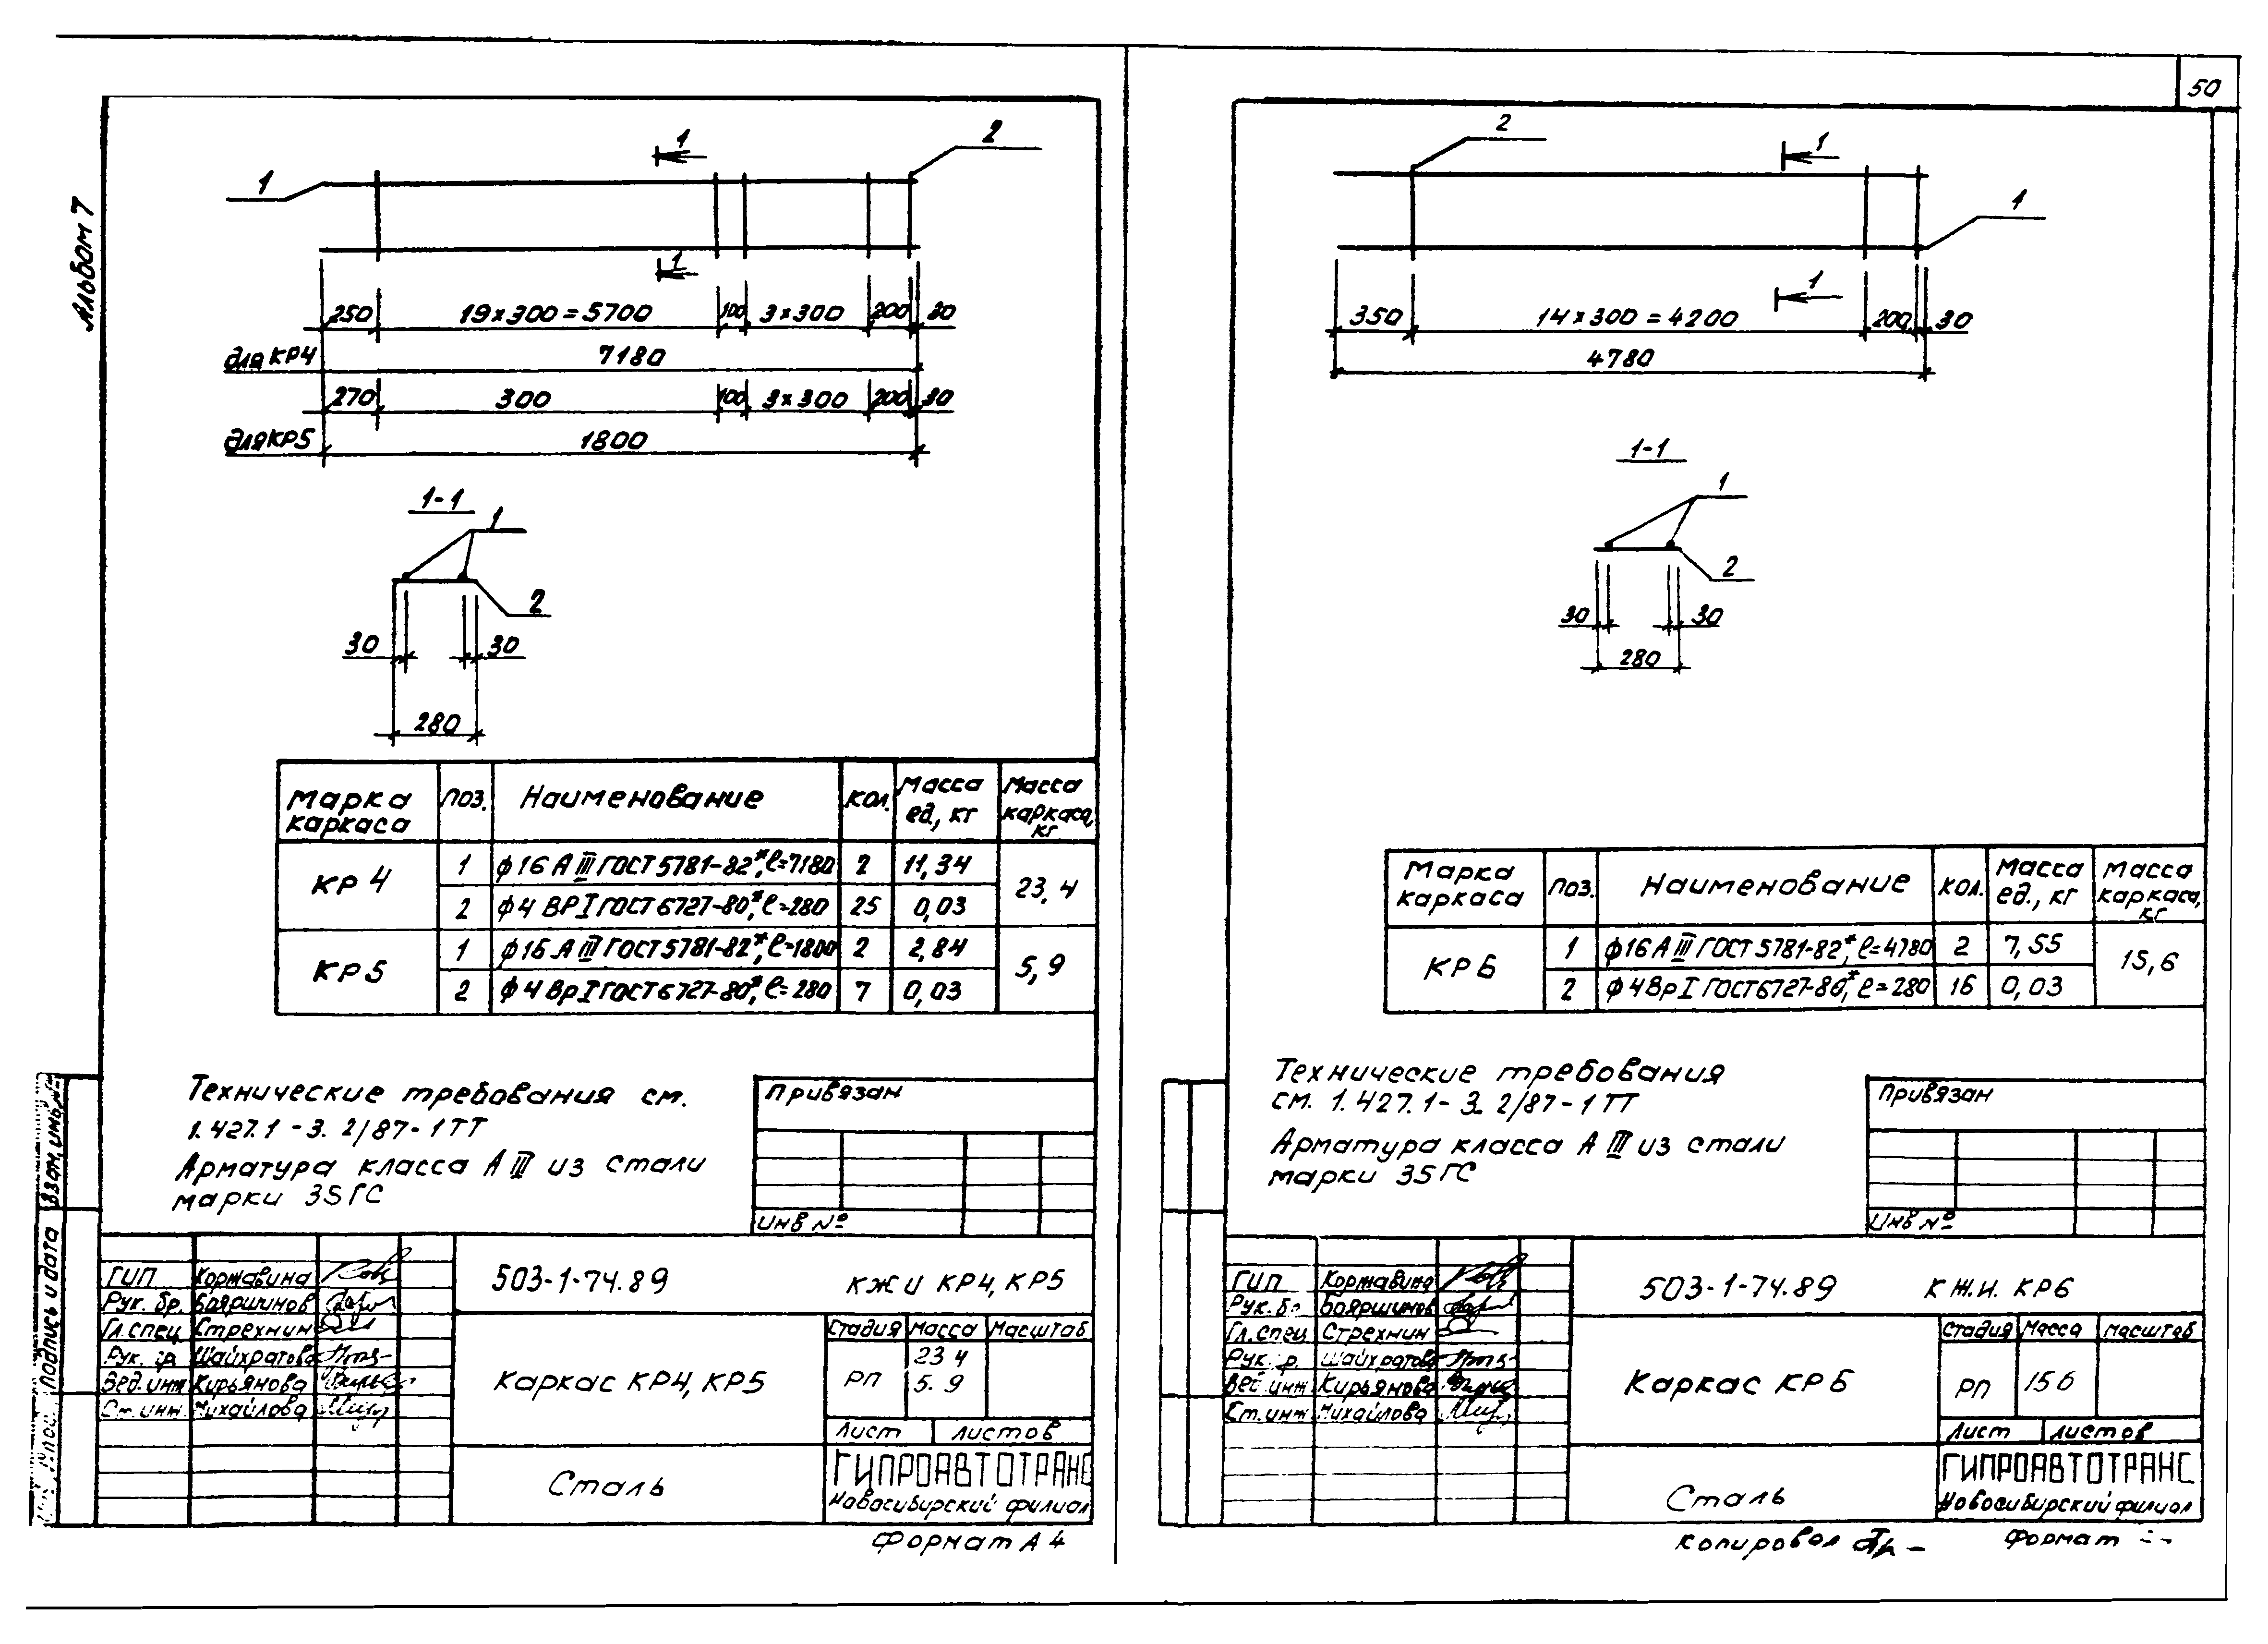 50
Альбом 7
1
1
2
1
250 19×300=5700 100 3×300 200 30
для КР4 7180
270 300 100 3×300 200 30
для КР5 1800
1-1
1
2
30 30
280
Марка каркаса Поз. Наименование Кол. Масса ед., кг Масса каркаса, кг
КР4 1 ф16 А III ГОСТ 5781-82*, ℓ=7180 2 11,34 23,4
2 ф4 ВРI ГОСТ 6727-80*, ℓ=280 25 0,03
КР5 1 ф16 А III ГОСТ 5781-82*, ℓ=1800 2 2,84 5,9
2 ф4 ВрI ГОСТ 6727-80*, ℓ=280 7 0,03
Технические требования см.
1.427.1-3.2/87-1ТТ
Арматура класса А III из стали
марки 35ГС
Привязан
Инв №
Взам. инв. №
Подпись и дата
ГИП Коржавина
Рук. бр. Бояршинов
Гл. спец Стрехнин
Рук. гр. Шайхратова
Вед. инж Кирьянова
Ст. инж. Михайлова
503-1-74.89 КЖИ КР4, КР5
Каркас КР4, КР5
Стадия Масса Масштаб
РП 23 4
5.9
Лист Листов
Сталь
ГИПРОАВТОТРАНС
Новосибирский филиал
Формат А4
2
1
1
1
350 14×300=4200 200 30
4780
1-1
1
2
30 30
280
Марка каркаса Поз. Наименование Кол. Масса ед., кг Масса каркаса, кг
КР6 1 ф16 А III ГОСТ 5781-82*, ℓ=4780 2 7,55 15,6
2 ф4 ВрI ГОСТ 6727-80*, ℓ=280 16 0,03
Технические требования
см. 1.427.1-3.2/87-1ТТ
Арматура класса А III из стали
марки 35ГС
Привязан
Инв №
ГИП Коржавина
Рук. бр Бояршинов
Гл. спец Стрехнин
Рук. гр. Шайхратова
Вед. инж Кирьянова
Ст. инж Михайлова
503-1-74.89 КЖ.И. КР6
Каркас КР6
Стадия Масса Масштаб
РП 15 6
Лист Листов
Сталь
ГИПРОАВТОТРАНС
Новосибирский филиал
Копировал
Формат